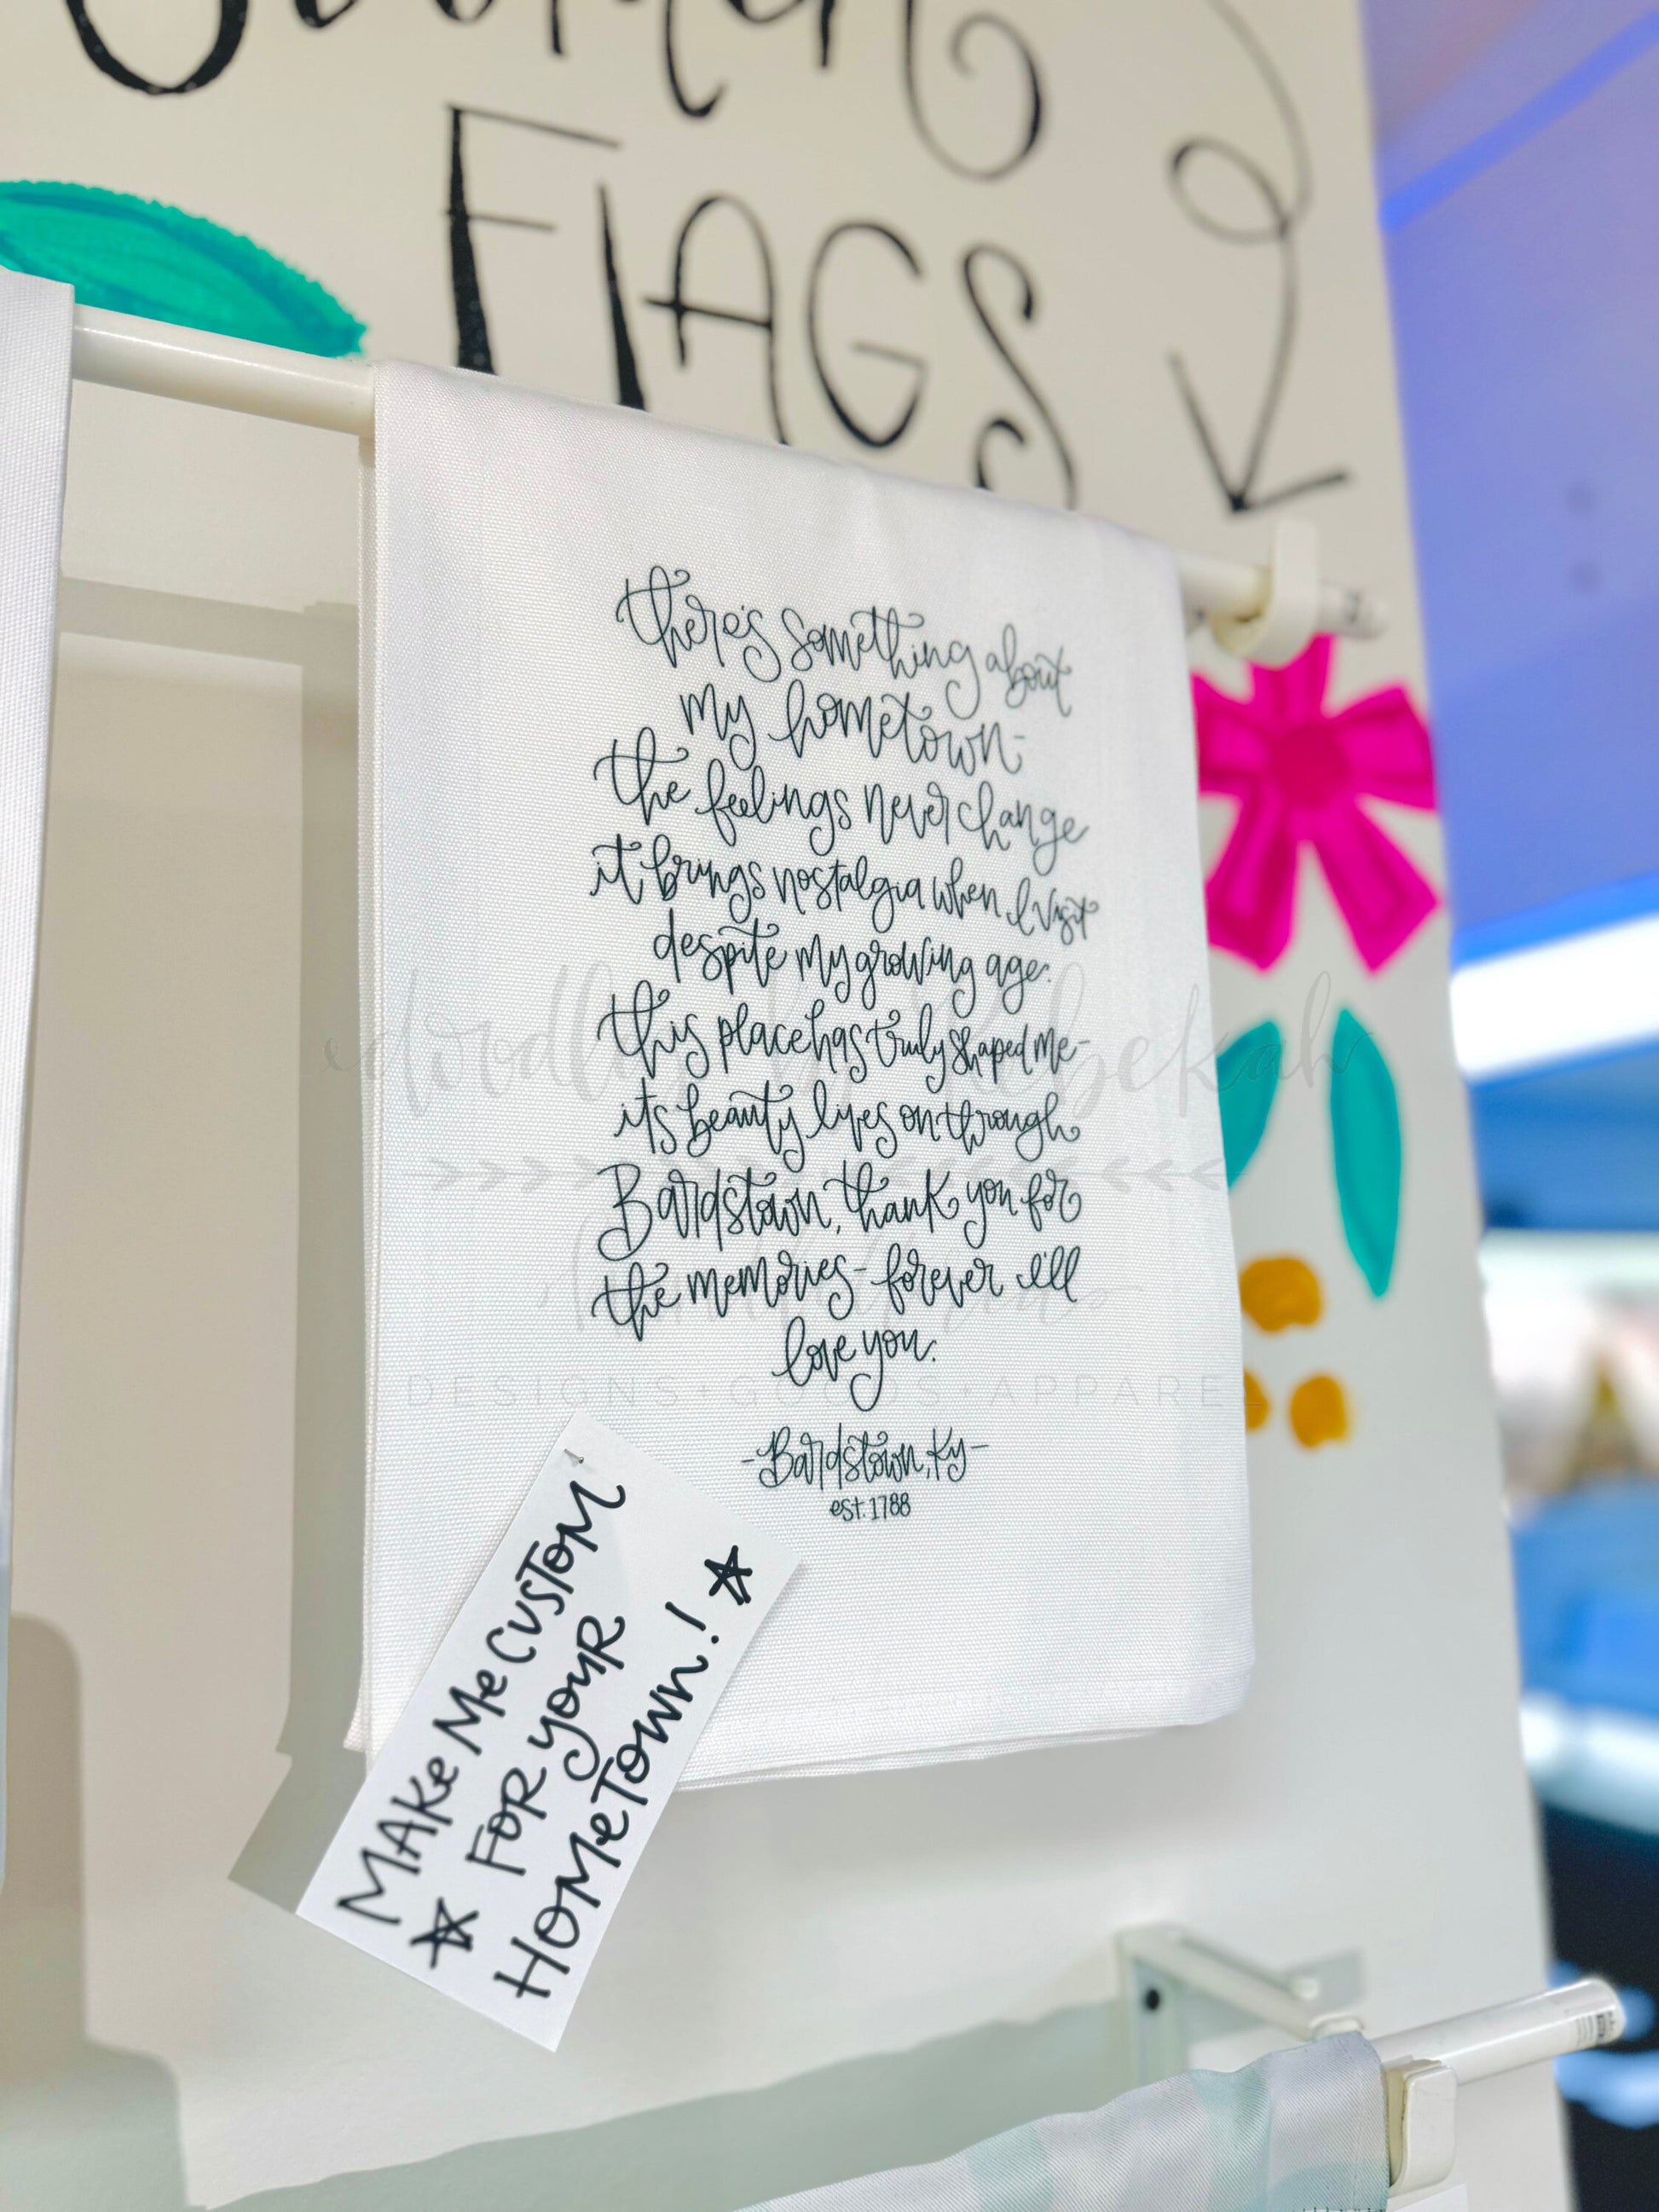 FlAGS
there's something about
my hometown-
the feelings never change
it brings nostalgia when I visit
despite my growing age.
this place has truly shaped me-
its beauty lives on through
Bardstown, thank you for
the memories - forever I'll
love you.
-Bardstown, Ky-
est. 1788
MAKe Me CusTOM
FOR youR
HOMeTown!
doodles by Rebekah
DESIGNS + GOODS + APPAREL